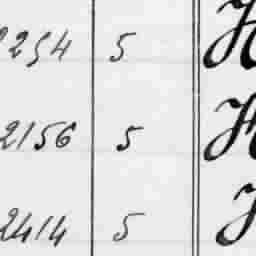 2254 5 H
2156 5 H
2414 5